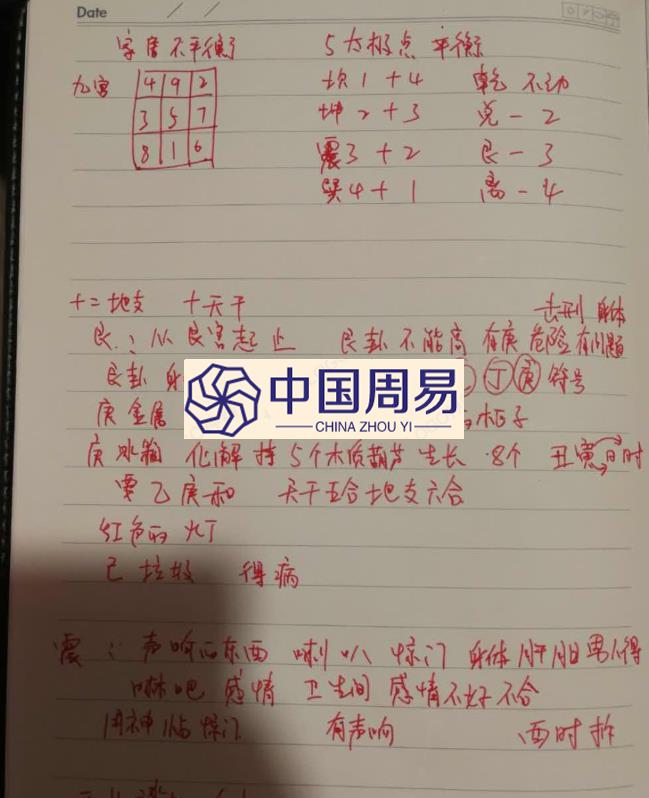 Date
家居不平衡 5大极点 平衡
九宫 4 9 2 坎1+4 乾 不动
3 5 7 坤2+3 兑-2
8 1 6 震3+2 艮-3
巽4+1 离-4
十二地支 十天干 去刑 身体
艮:从艮宫起止 艮卦不能高 有庚危险有问题
艮卦 身 丁 庚 符号
中国周易
CHINA ZHOU YI
庚金属 柜子
庚冰箱 化解 挂5个木质葫芦 生长 8个 丑寅日时
要乙庚和 天干五合地支六合
红色的灯
己垃圾 得病
震:声响的东西 喇叭 惊门 身体肝胆 男人得
感情 卫生间 感情不好不合
用神临惊门 有声响 酉时拆